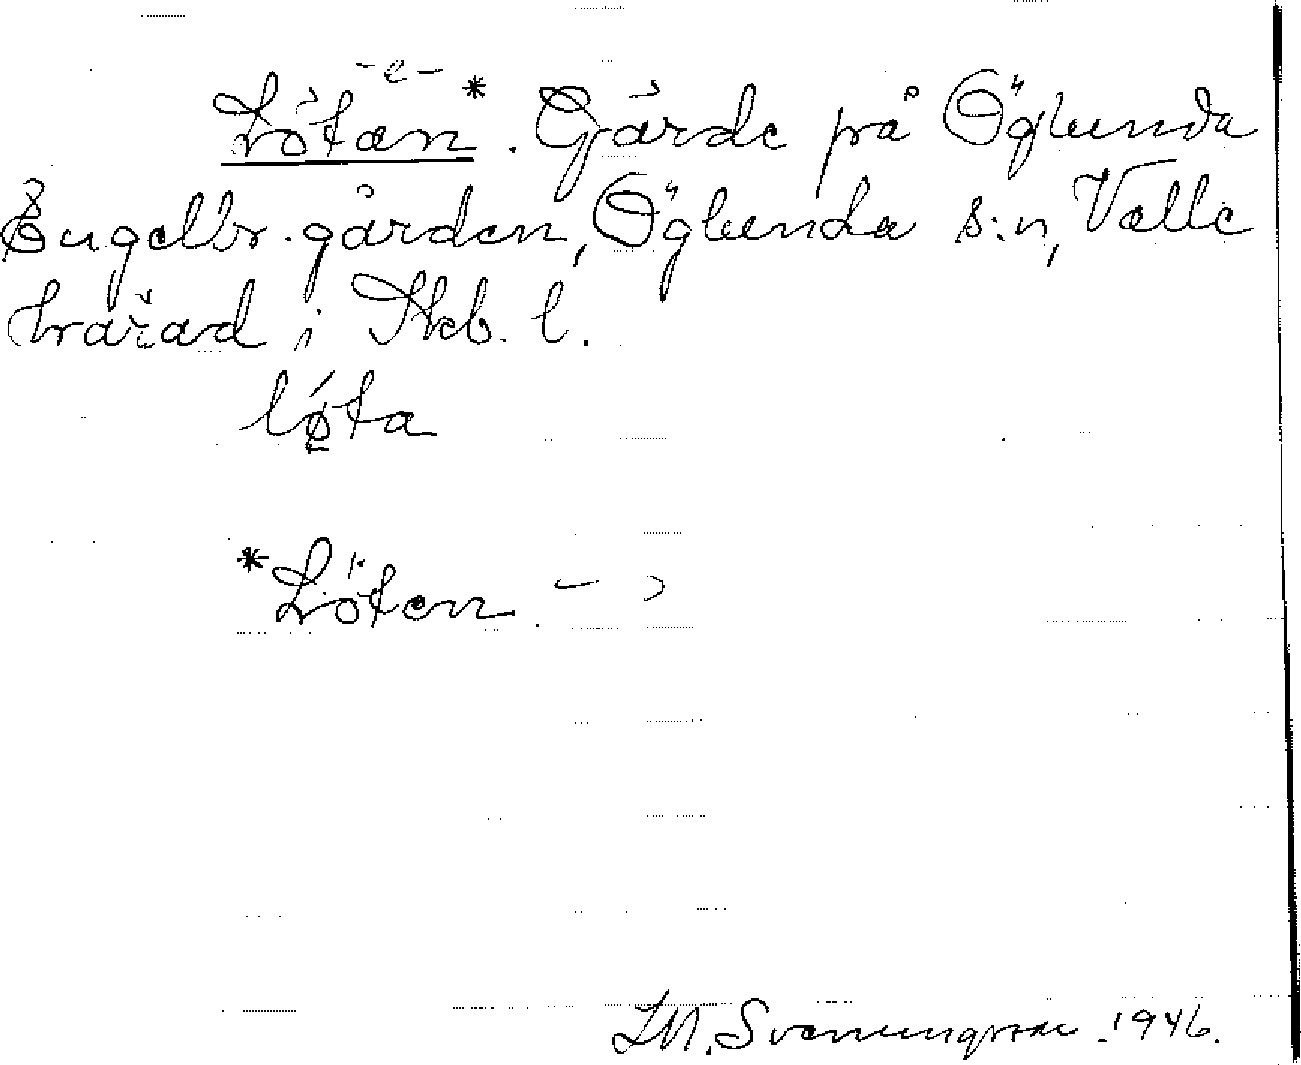 -e-
Lötan*. Gärde på Öglunda
Engelbr.gården, Öglunda s:n, Valle
härad i Skb. l.
lǿ̱ta
*Löten -
L.M. Svenungsson -1946.